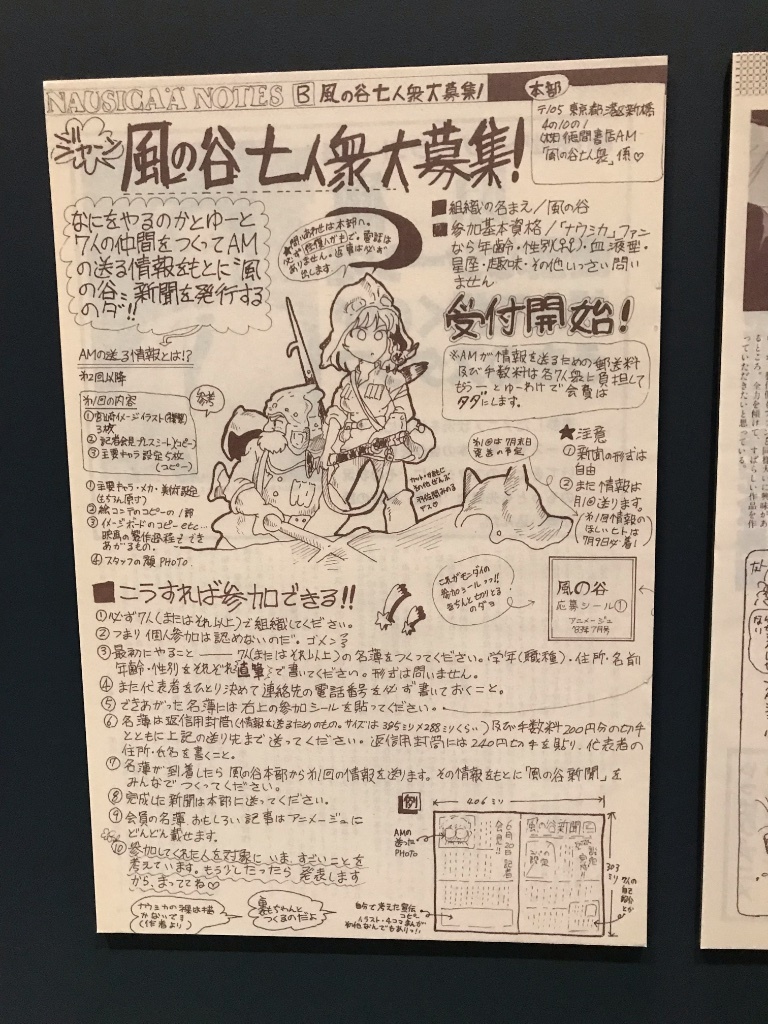 NAUSICAÄ NOTES B 風の谷七人衆大募集!
ジャーン
風の谷七人衆大募集!
本部
〒105 東京都港区新橋
4の10の1
徳間書店AM
「風の谷七人衆」係♡
なにをやるのかとゆーと
7人の仲間をつくってAM
の送る情報をもとに"風
の谷"新聞を発行する
のダ!!
★問い合わせは本部へ。
必ず往復ハガキで。電話は
ありません。返事は必ず
出します。
■組織の名まえ/風の谷
■参加基本資格/「ナウシカ」ファン
なら年齢・性別(♀♂)・血液型・
星座・趣味・その他いっさい問い
ません
受付開始!
※AMが情報を送るための郵送料
及び手数料は各7人衆に負担して
もらーとゆーわけで会費は
タダにします。
AMの送る情報とは!?
第2回以降
第1回の内容
①宮崎イメージイラスト(複製)
3枚
②記者会見プレスシート(コピー)
③主要キャラ設定5枚
(コピー)
参考
①主要キャラ・メカ・美術設定
(もちろん原寸)
②絵コンテのコピーの1部
③イメージボードのコピーetc…
映画の製作過程をでき
あがるもの。
④スタッフの顔PHOTO
第1回は7月末日
発送の予定
★注意
①新聞の形式は
自由
②また情報は
月1回送ります。
(第1回情報の
ほしいヒトは
7月9日必着!)
■こうすれば参加できる!!
これがモンダイの
参加シールっつ!!
きちんと切りとる
のダヨ
風の谷
応募シール①
アニメージュ
'83年7月号
①必ず7人(またはそれ以上)で組織してください。
②つまり個人参加は認めないのだ。ゴメン
③最初にやること——7人(またはそれ以上)の名簿をつくってください。学年(職種)・住所・名前
年齢・性別をそれぞれ直筆で書いてください。形式は問いません。
④また代表者をひとり決めて連絡先の電話番号を必ず書いておくこと。
⑤できあがった名簿には右上の参加シールを貼ってください。
⑥名簿は返信用封筒(情報を送るためのもの。サイズは395ミリ×288ミリくらい)及び手数料200円分の切手
とともに上記の送り先まで送ってください。返信用封筒には240円切手を貼り、代表者の
住所・氏名を書くこと。
⑦名簿が到着したら風の谷本部から第1回の情報を送ります。その情報をもとに「風の谷新聞」を
みんなでつくってください。
⑧完成した新聞は本部に送ってください。
⑨会員の名簿、おもしろい記事はアニメージュに
どんどん載せます。
⑩参加してくれた人を対象に、いま、すごいことを
考えています。もう少したったら発表します
から、まっててね♡
例
406ミリ
303ミリ
AMの
送った
PHOTO
風の谷新聞
6月20日
ナウシカの裸は描
かないでヨ
(作者より)
裏もちゃんと
つくるのだよ
自分で考えた宣伝
コピー
イラスト・4コマまんが
その他なんでもあり!!